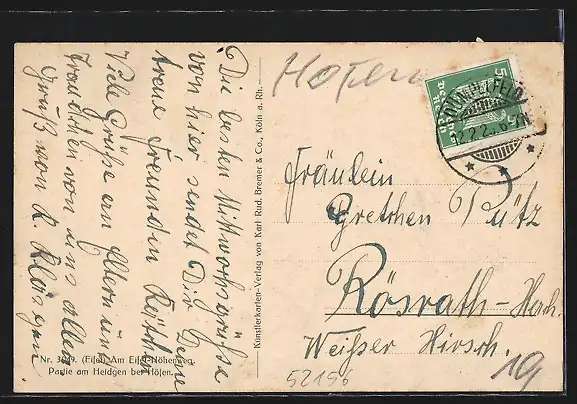 Die besten Mittwochsgrüße
von hier sendet Dir Deine
treue Freundin Kätchen
Viele Grüße an Eltern und
Traudchen von uns allen
Gruß von K. Klassen
Nr. 3049. (Eifel) Am Eifel-Höhenweg.
Partie am Heidgen bei Höfen.
Künstlerkarten-Verlag von Karl Rud. Bremer & Co., Köln a. Rh.
Höfen
5 5
Deutsches Reich
Fräulein
Gretchen Pütz
Rösrath-
Weißer Hirsch.
52156
19